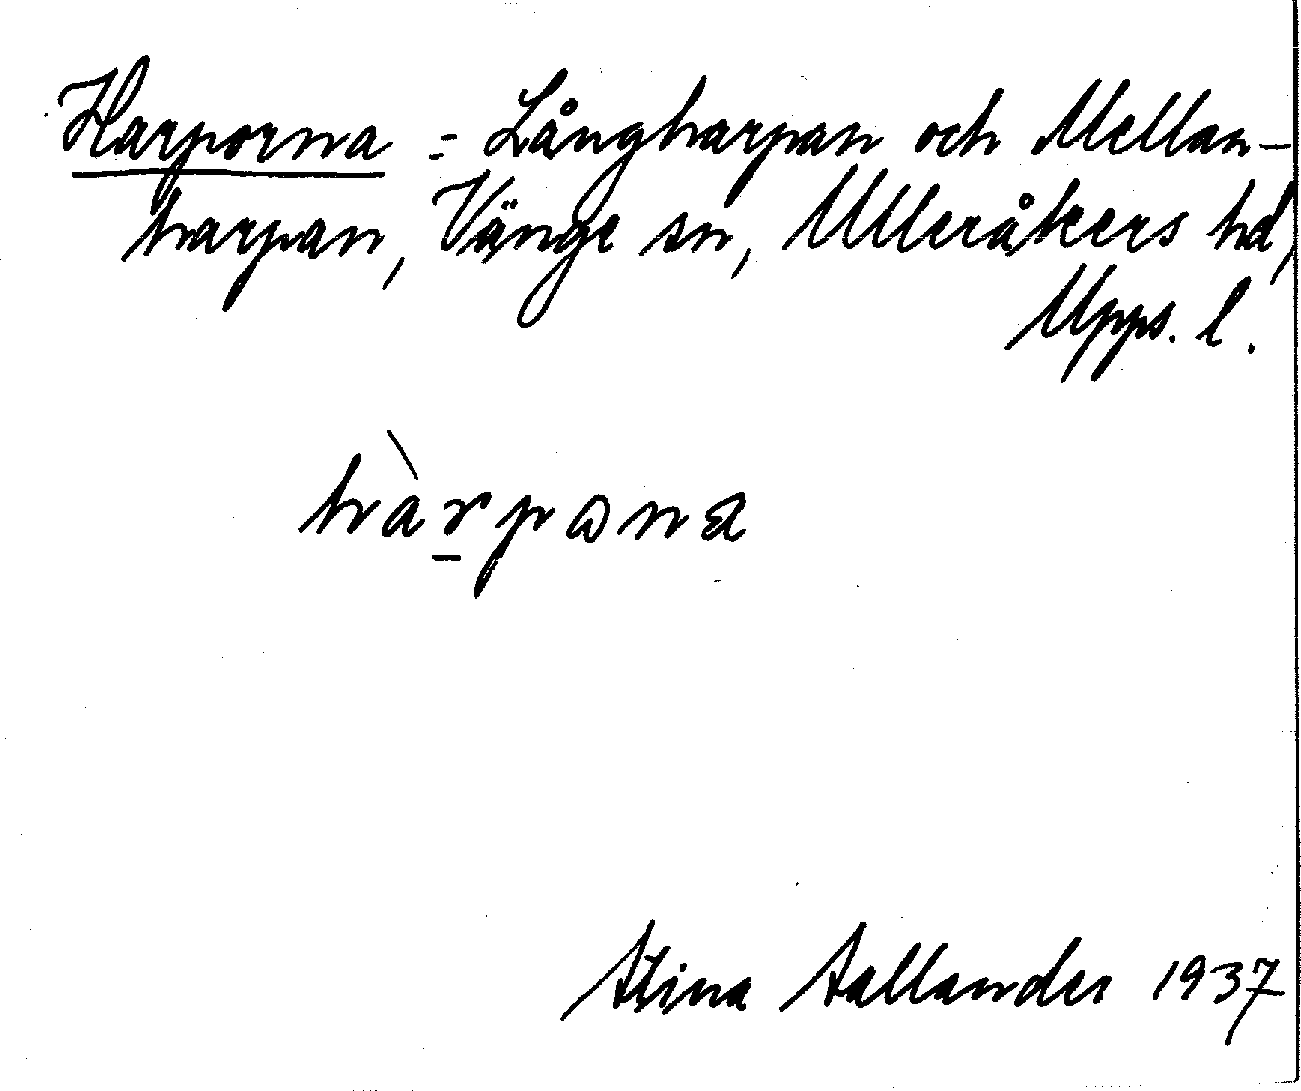 Harporna = Långharpan och Mellan-
harpan, Vänge sn, Ulleråkers hd,
Upps. l.
hàr̲pɷna
Stina Sallander 1937